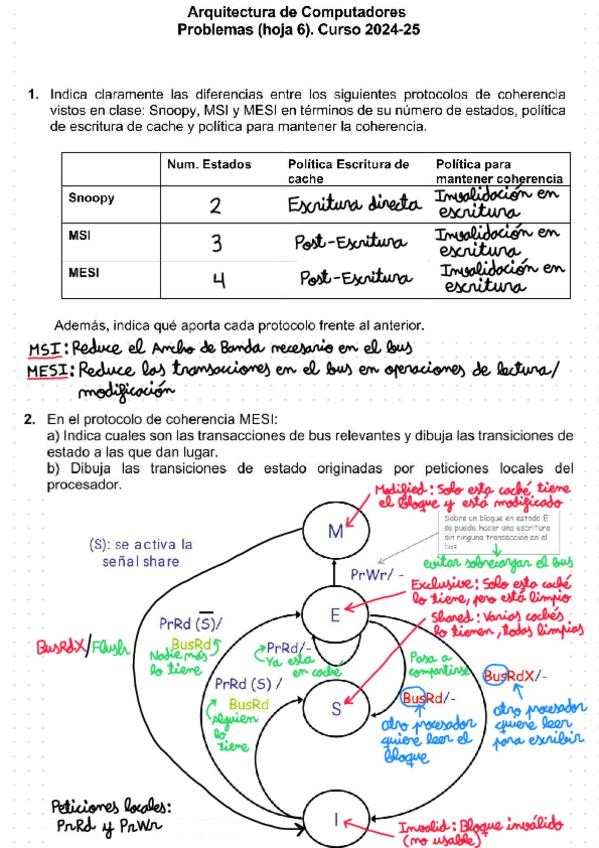 Arquitectura de Computadores
Problemas (hoja 6). Curso 2024-25
1. Indica claramente las diferencias entre los siguientes protocolos de coherencia
vistos en clase: Snoopy, MSI y MESI en términos de su número de estados, política
de escritura de cache y política para mantener la coherencia.
Num. Estados
Política Escritura de
cache
Política para
mantener coherencia
Snoopy
2
Escritura directa
Invalidación en
escritura
MSI
3
Post-Escritura
Invalidación en
escritura
MESI
4
Post-Escritura
Invalidación en
escritura
Además, indica qué aporta cada protocolo frente al anterior.
MSI: Reduce el Ancho de Banda necesario en el bus
MESI: Reduce las transacciones en el bus en operaciones de lectura/
modificación
2. En el protocolo de coherencia MESI:
a) Indica cuales son las transacciones de bus relevantes y dibuja las transiciones de
estado a las que dan lugar.
b) Dibuja las transiciones de estado originadas por peticiones locales del
procesador.
Modified: Solo esta caché tiene
el bloque y está modificado
M
Sobre un bloque en estado E
se puede hacer una escritura
sin ninguna transacción en el
bus
(S): se activa la
señal share
evitar sobrecargar el bus
PrWr/ -
Exclusive: Solo esta caché
lo tiene, pero está limpio
E
Shared: Varios cachés
lo tienen, todas limpias
PrRd (S)/
BusRd
Nadie más
lo tiene
BusRdX/Flush
PrRd/-
Ya esta
en caché
Pasa a
compartirse
BusRdX/-
PrRd (S) /
BusRd
Alguien
lo
tiene
S
BusRd/-
otro procesador
quiere leer el
bloque
otro procesador
quiere leer
para escribir
Peticiones locales:
PrRd y PrWr
I
Invalid: Bloque inválido
(no usable)